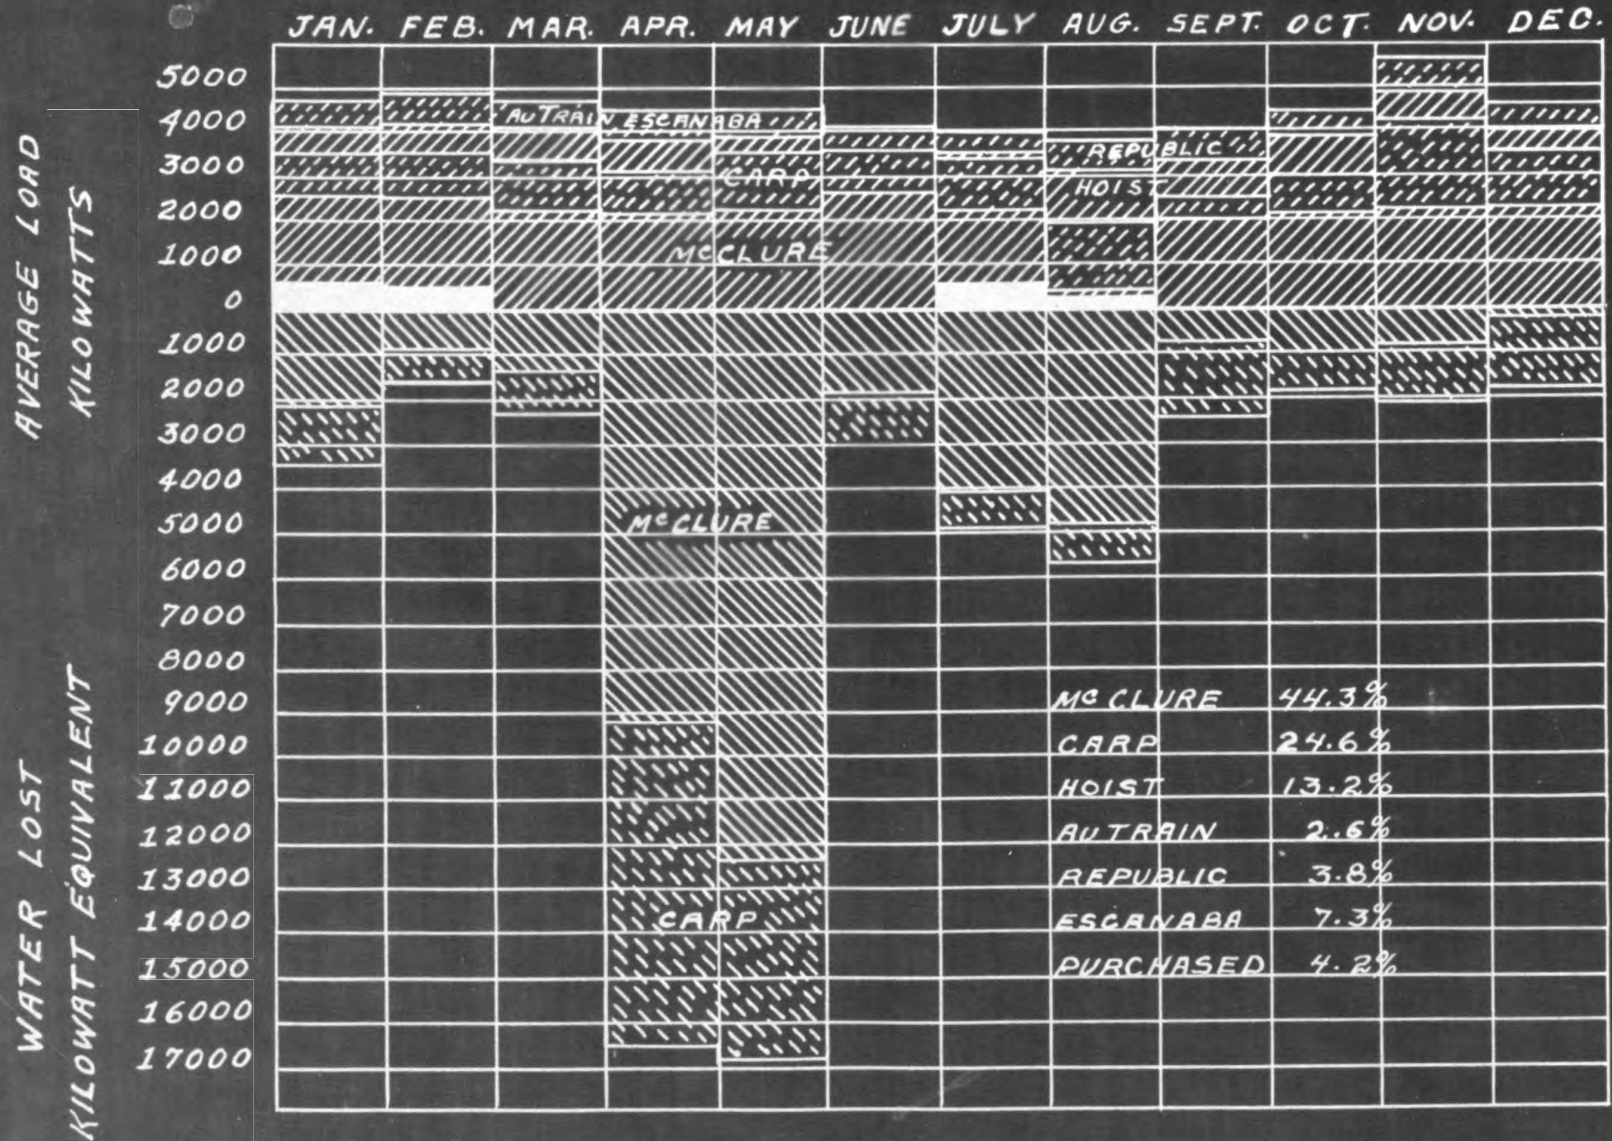 JAN. FEB. MAR. APR. MAY JUNE JULY AUG. SEPT. OCT. NOV. DEC.
5000
4000
3000
2000
1000
0
1000
2000
3000
4000
5000
6000
7000
8000
9000
10000
11000
12000
13000
14000
15000
16000
17000
AVERAGE LOAD
KILOWATTS
WATER LOST
KILOWATT EQUIVALENT
AUTRAIN ESCANABA
REPUBLIC
CARP
HOIST
McCLURE
McCLURE
CARP
McCLURE 44.3%
CARP 24.6%
HOIST 13.2%
AUTRAIN 2.6%
REPUBLIC 3.8%
ESCANABA 7.3%
PURCHASED 4.2%